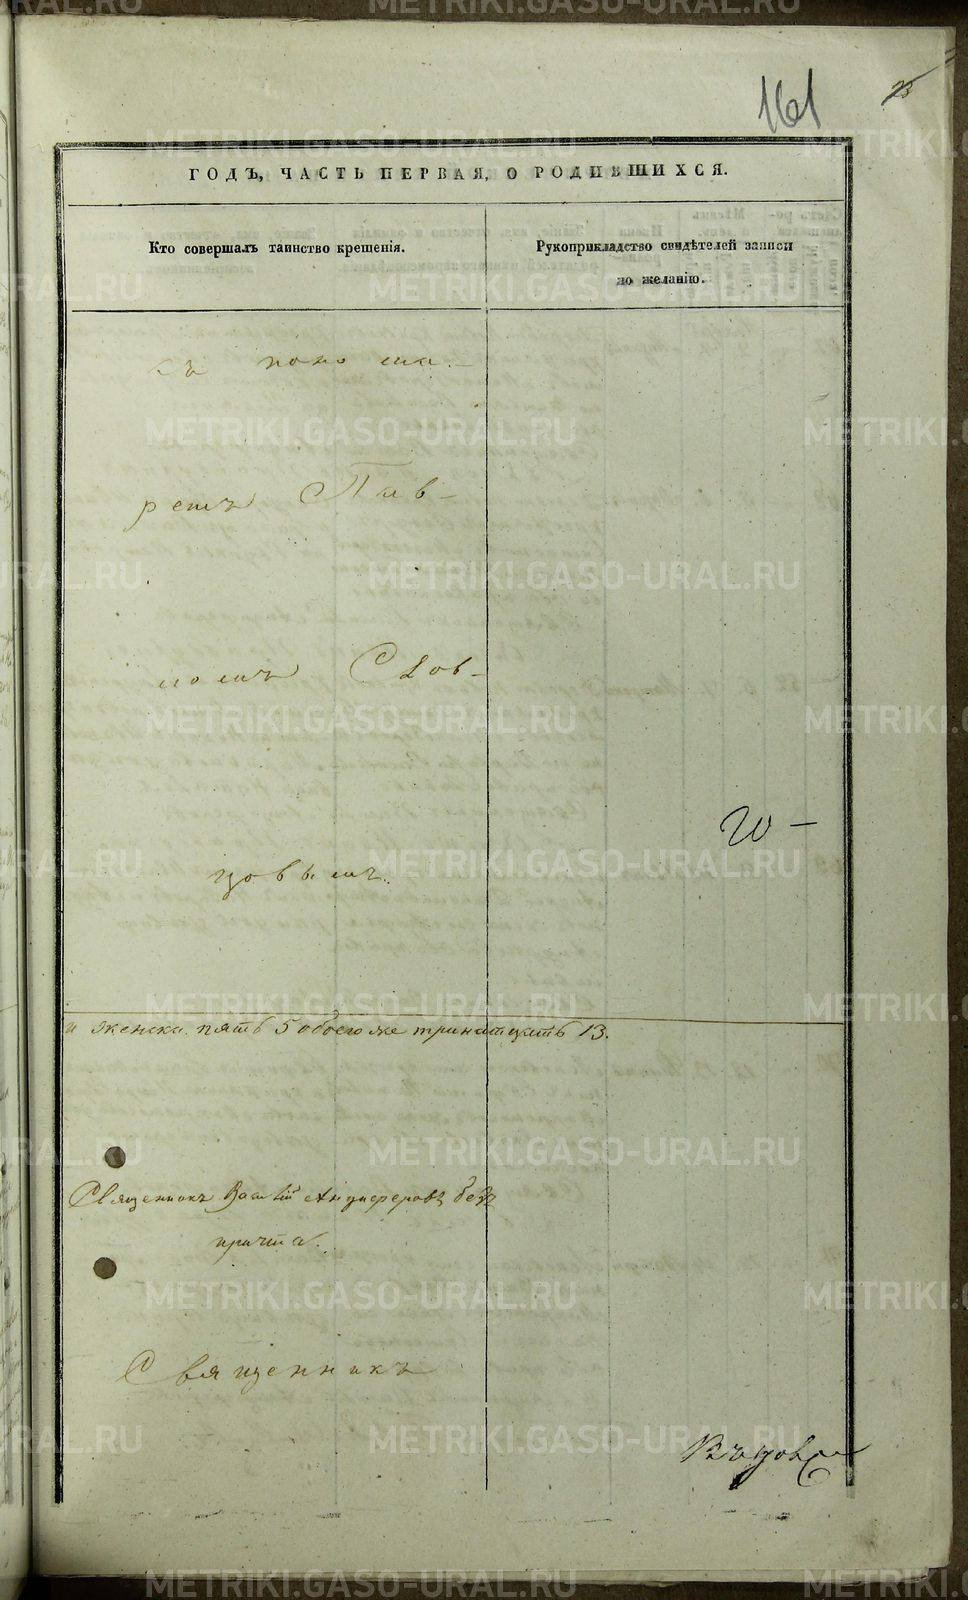 161
23
ГОДЪ, ЧАСТЬ ПЕРВАЯ, О РОДИВШИХСЯ.
Кто совершалъ таинство крещенія.
Рукоприкладство свидѣтелей записи
по желанію.
съ поно
ремъ Пав-
момъ Слов-
цовымъ.
и женска пять 5 обоего же тринатцать 13.
Священникъ Василій Анциферовъ безъ
причта.
Священникъ
METRIKI.GASO-URAL.RU